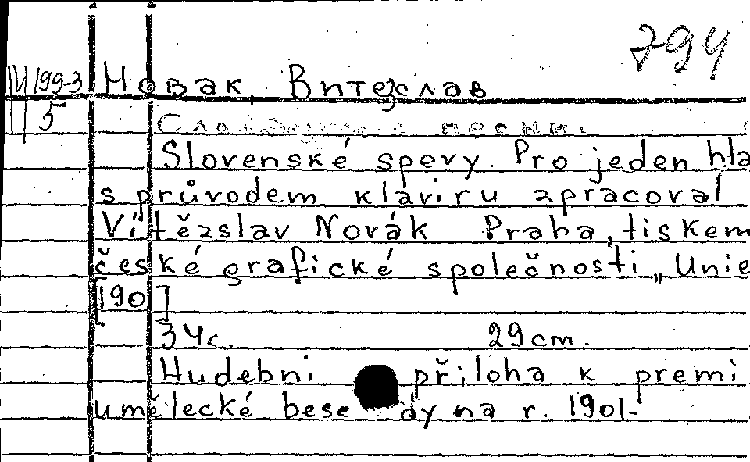 794
М 199-3 Новак, Витезслав
5
песни.
Slovenské spevy. Pro jeden hla
s průvodem klaviru zpracoval
Vítězslav Novák Praha, tiskem
české grafické společnosti „Unie
[190 ]
34 c. 29 cm.
Hudebni příloha k premi
umělecké besedy na r. 1901-